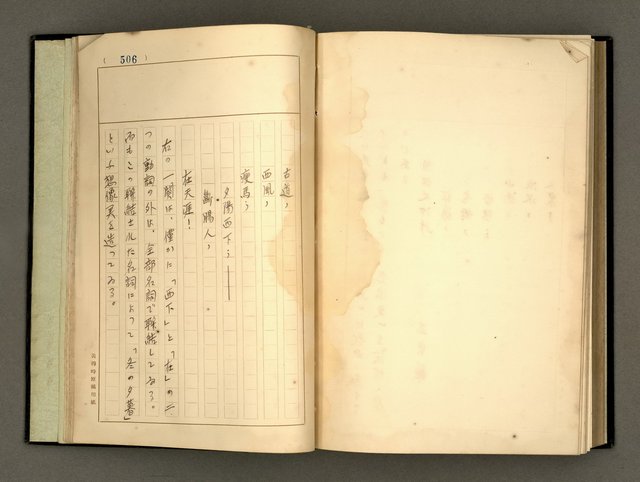 (506)
古道、
西風、
瘦馬、
夕陽西下、——
斷腸人、
在天涯！
右の一闋は、僅かに「西下」と「在」の二
つの動詞の外は、全部名詞で聯結してゐる。
而もこの聯結された名詞によつて「冬の夕暮」
といふ想像美を造つてゐる。
黃得時原稿用紙